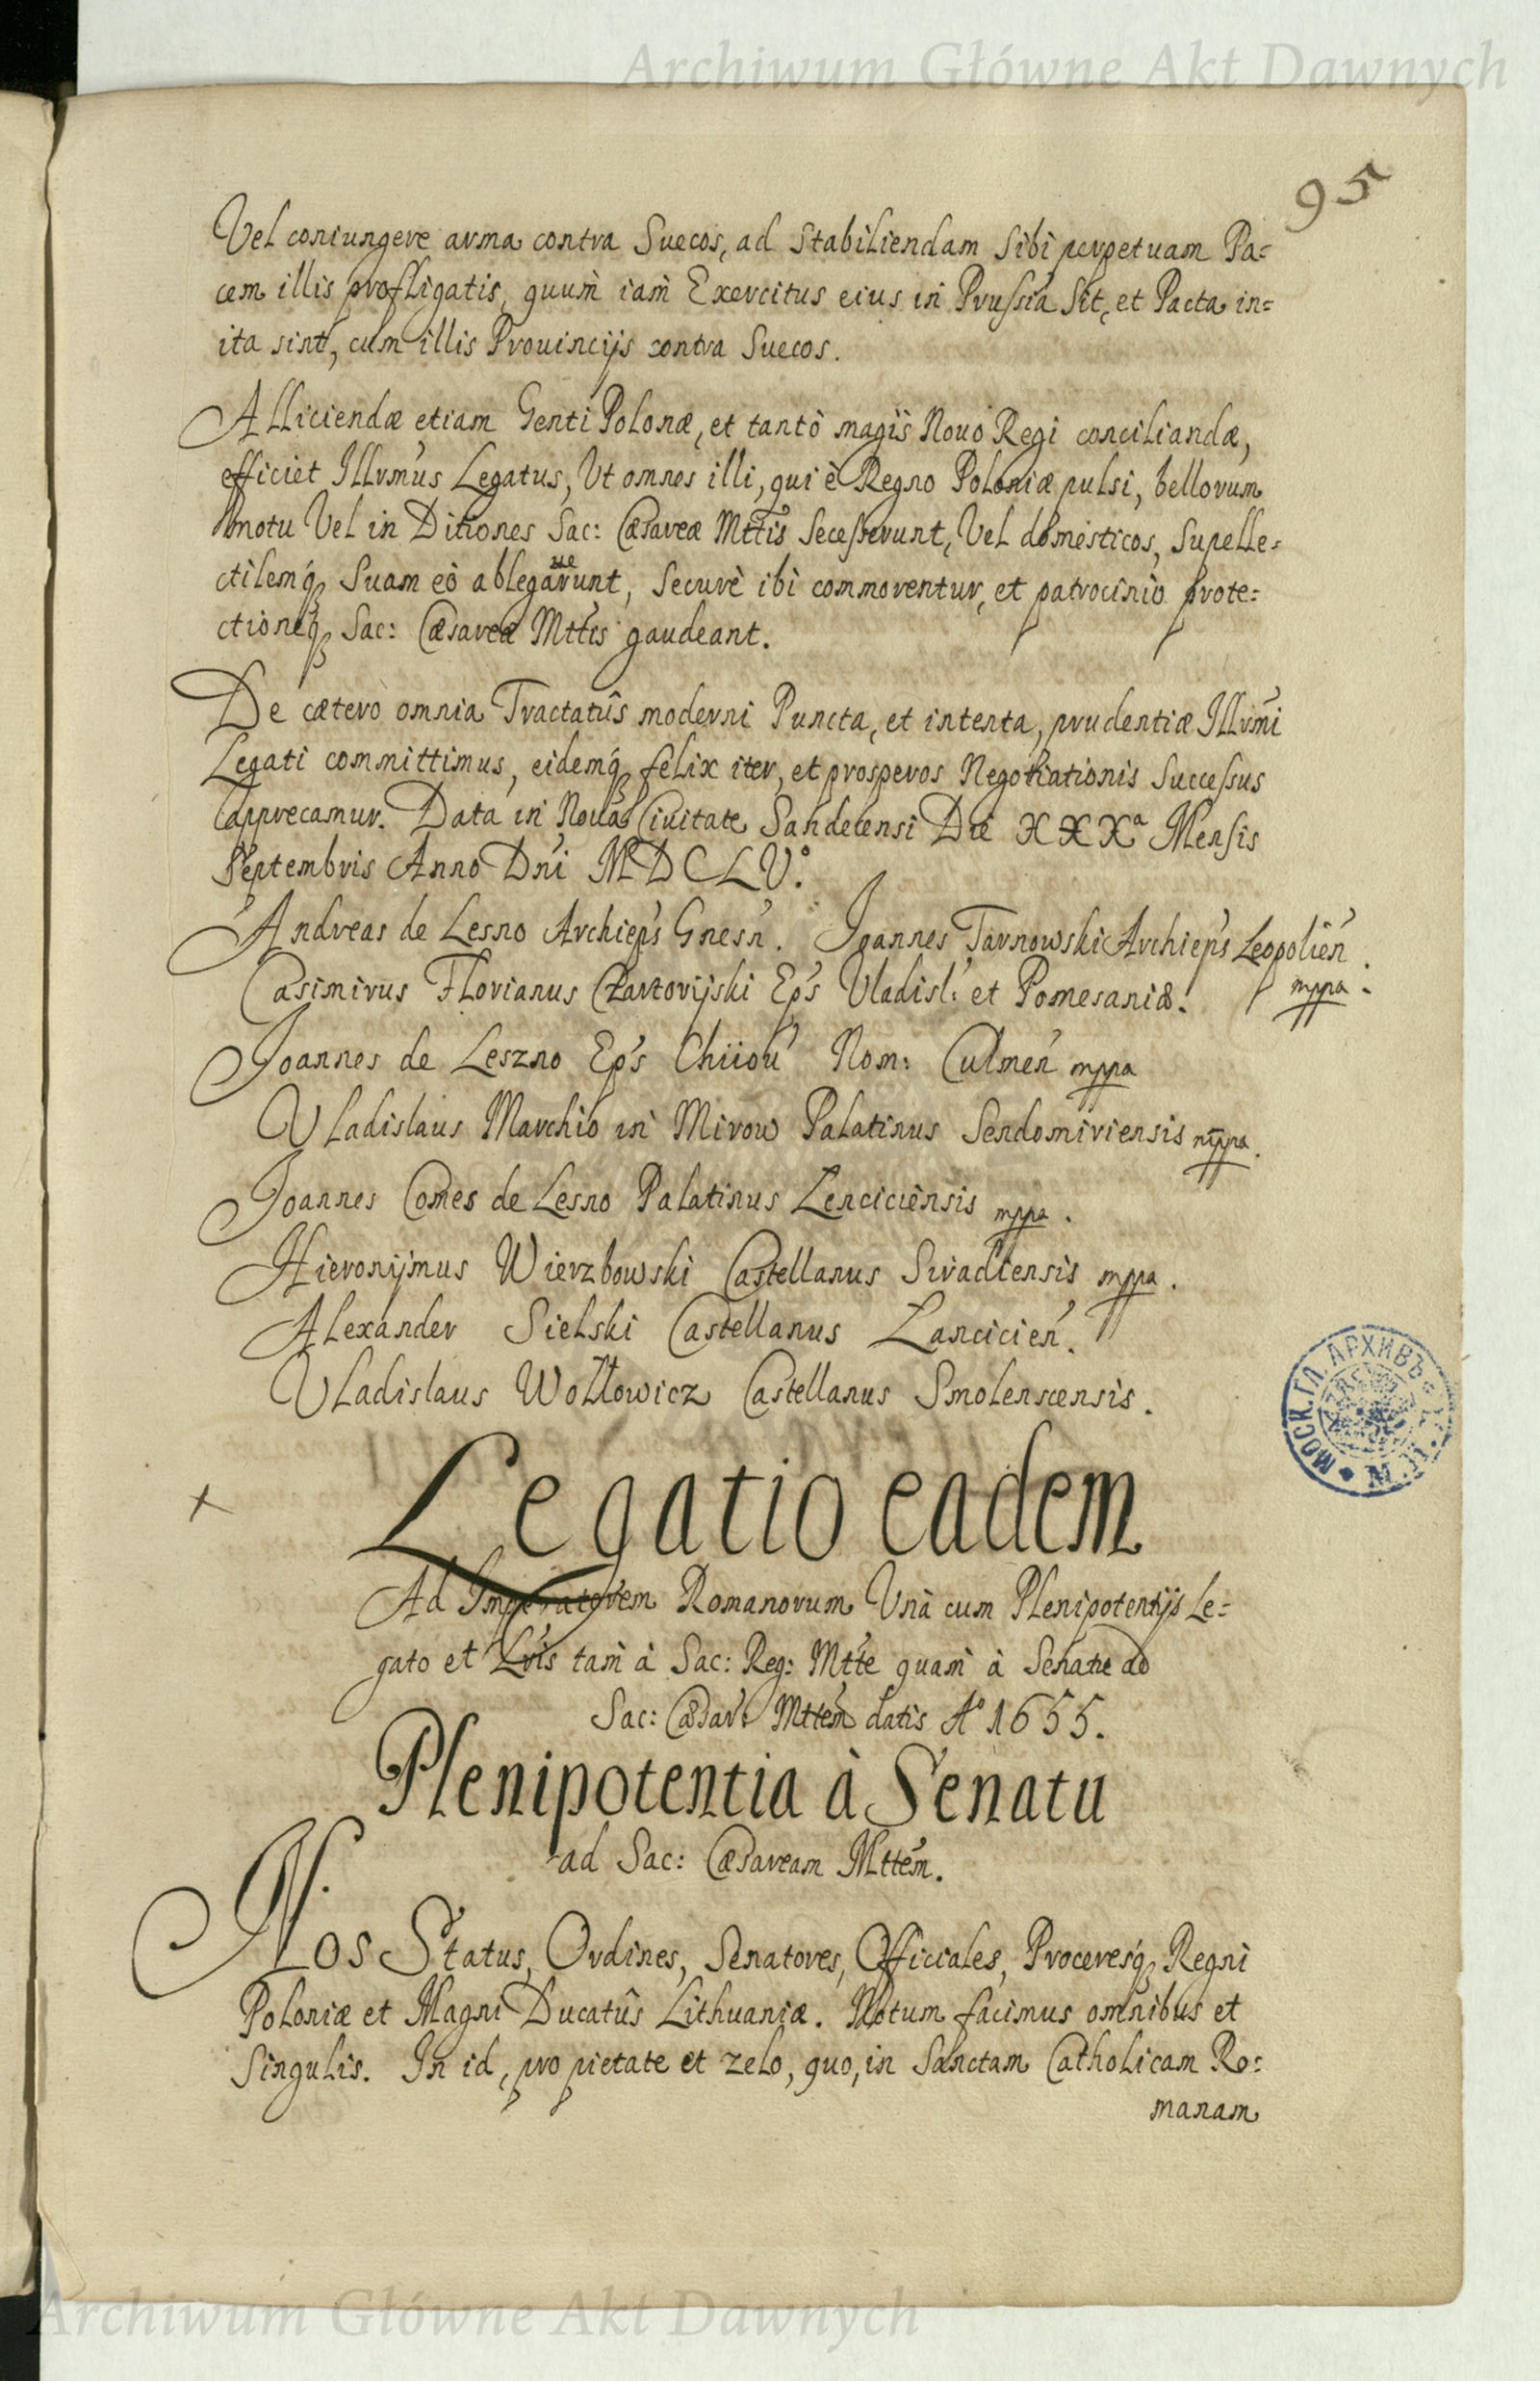 Archiwum Główne Akt Dawnych
95
Vel coniungere arma contra Suecos, ad stabiliendam sibi perpetuam Pa=
cem illis profligatis, quum̀ iam̀ Exercitus eius in Prussia sit, et Pacta in=
ita sint, cum illis Prouincijs contra Suecos.
Alliciendæ etiam Genti Polonæ, et tantò magìs Nouo Regi conciliandæ,
efficiet Illvm̃us Legatus, Ut omnes illi, qui è Regno Poloniæ pulsi, bellorum
motu Vel in Ditiones Sac: Cæsareæ Mttis secesserunt, Vel domesticos, supelle=
ctilemq́ꝫ suam eò ablegarunt, securè ibi commorentur, et patrocinio prote=
ctioneq́ꝫ Sac: Cæsareæ Mttis gaudeant.
De cætero omnia Tractatûs moderni Puncta, et intenta, prudentiæ Illvm̃i
Legati committimus, eidemq́ꝫ felix iter, et prosperos Negotiationis Successus
apprecamur. Data in Noua Ciuitate Sandecensi Die XXXª Mensis
Septembris Anno Dni MDCLVº.
Andreas de Lesno Archiep̃s Gnesn̄. Joannes Tarnowski Archiep̃s Leopolień.
Casimirus Florianus Czartoryjski Ep̃s Vladisl: et Pomesaniæ. mppa.
Joannes de Leszno Ep̃s Chiiou̕ Nom: Culmen̕ mppa
Vladislaus Marchio in Mirow Palatinus Sendomiriensis mppa.
Joannes Comes de Lesno Palatinus Lenciciensis mppa.
Hieronijmus Wierzbowski Castellanus Siradiensis mppa.
Alexander Sielski Castellanus Lancicień.
Vladislaus Wołłowicz Castellanus Smolenscensis.
Legatio eadem
Ad Imperatorem Romanorum Unà cum Plenipotentijs Le=
gato et Lr̃is tam̀ à Sac: Reg: Mtte quam̀ à Senatu ad
Sac: Cæsar: Mttem datis Aº 1655.
Plenipotentia à Senatu
ad Sac: Cæsaream Mttem.
Nos Status, Ordines, Senatores, Officiales, Proceresq́ꝫ Regni
Poloniæ et Magni Ducatûs Lithuaniæ. Notum facimus omnibus et
singulis. In id, pro pietate et zelo, quo, in Sanctam Catholicam Ro=
manam
МОСК. ГЛ. АРХИВЪ
Archiwum Główne Akt Dawnych